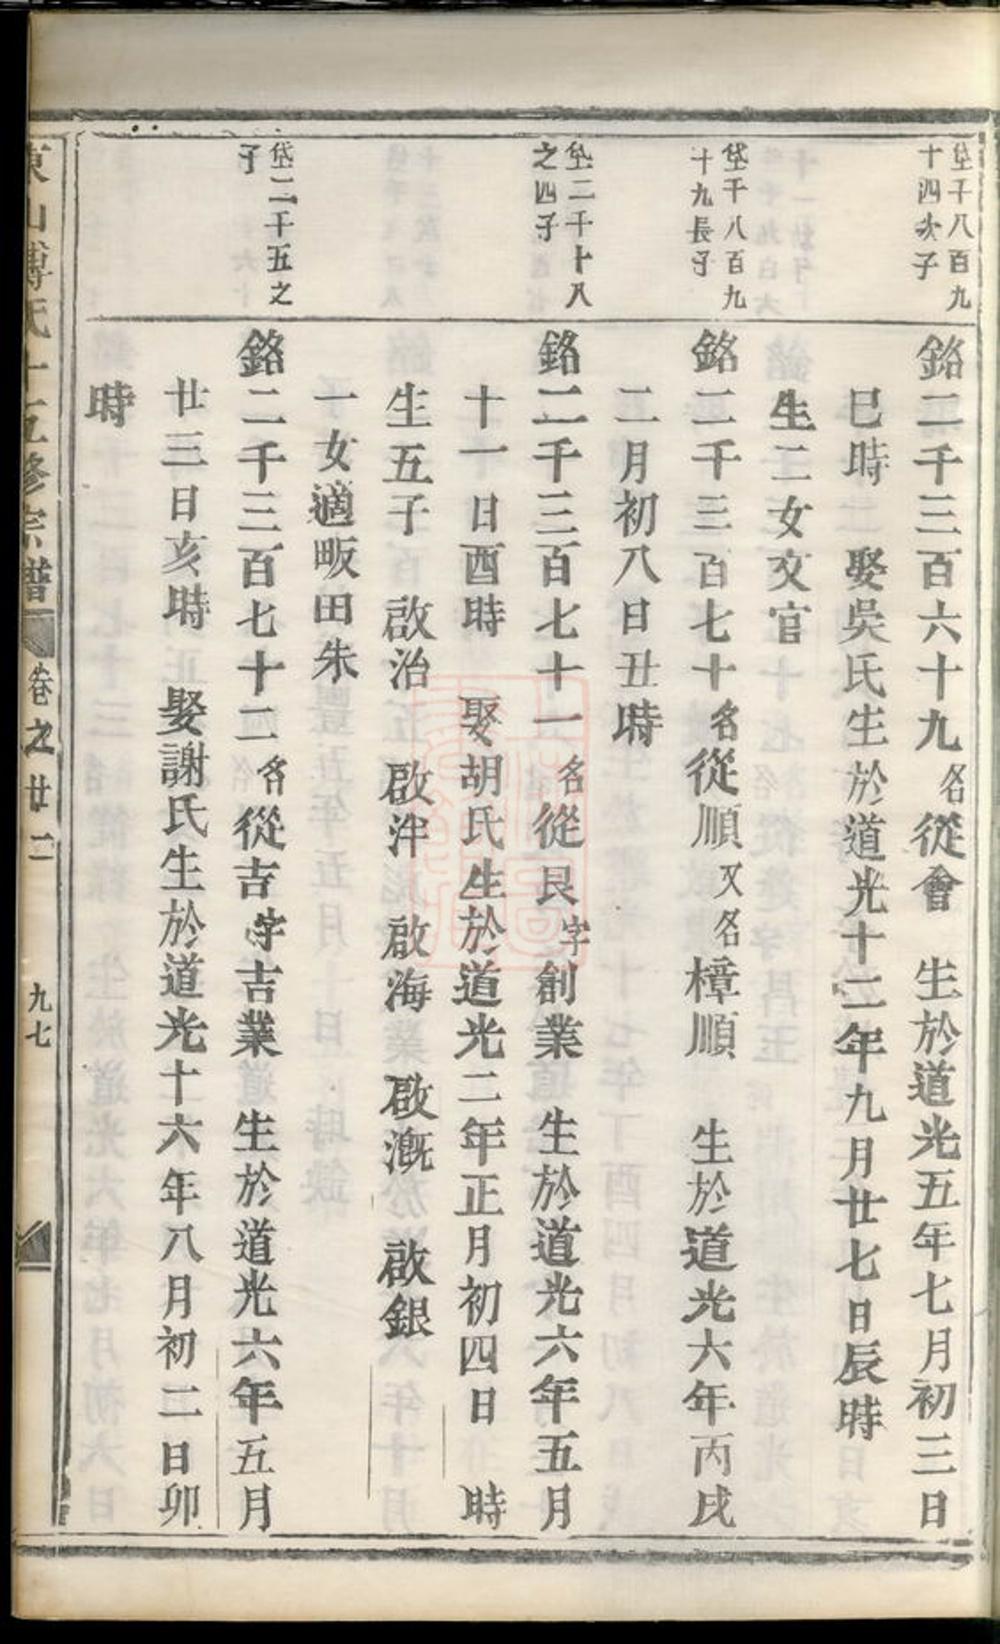 垡千八百九
十四次子
銘二千三百六十九名從會 生於道光五年七月初三日
巳時 娶吳氏生於道光十二年九月廿七日辰時
生二女文官
垡千八百九
十九長子
銘二千三百七十名從順又名樟順 生於道光六年丙戌
二月初八日丑時
垡二千十八
之四子
銘二千三百七十一名從艮字創業 生於道光六年五月
十一日酉時 娶胡氏生於道光二年正月初四日 時
生五子 啟治 啟泮 啟海 啟漑 啟銀
一女適畈田朱
垡二千五之
子
銘二千三百七十二名從吉字吉業 生於道光六年五月
廿三日亥時 娶謝氏生於道光十六年八月初二日卯
時
東山傅氏十五修宗譜 卷之廿二 九七